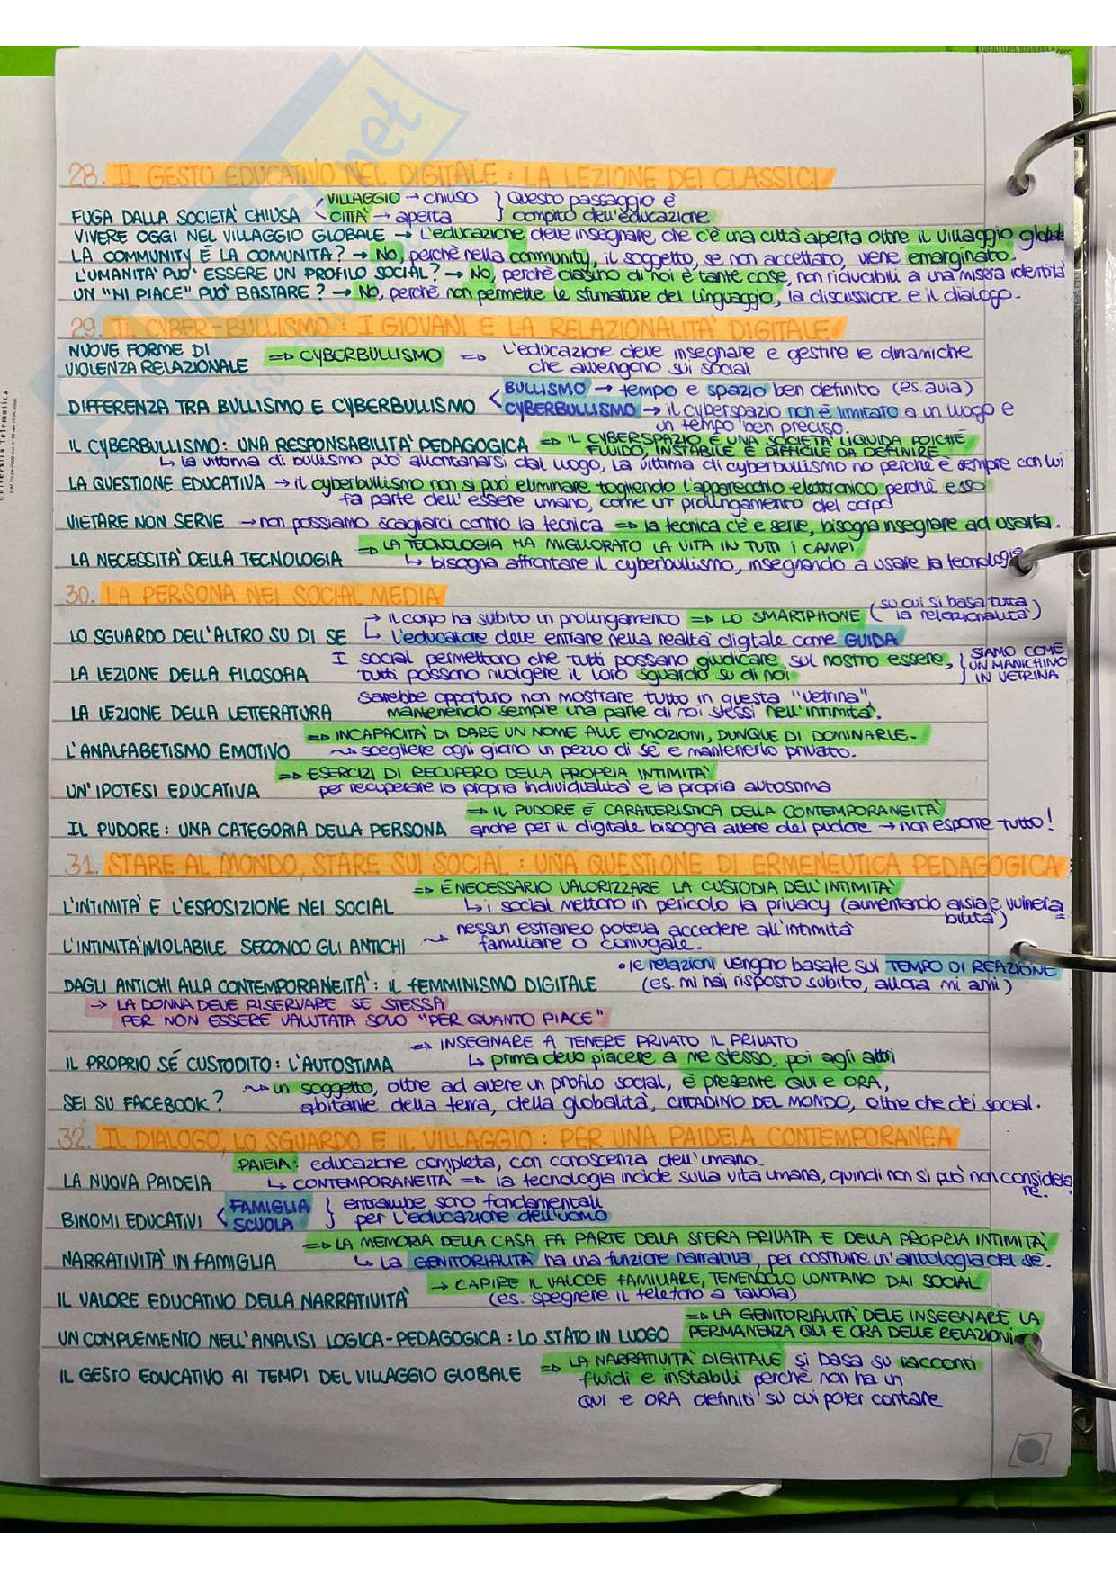 28. IL GESTO EDUCATIVO NEL DIGITALE: LA LEZIONE DEI CLASSICI
VILLAGGIO → chiuso } Questo passaggio è
FUGA DALLA SOCIETA' CHIUSA < CITTÀ → aperta } compito dell'educazione
VIVERE OGGI NEL VILLAGGIO GLOBALE → L'educazione deve insegnare, che c'è una città aperta oltre il villaggio globale
LA COMMUNITY È LA COMUNITÀ? → No, perchè nella community, il soggetto, se non accettato, viene emarginato.
L'UMANITA' PUO' ESSERE UN PROFILO SOCIAL? → No, perchè ciascuno di noi è tante cose, non riducibili a una misera identità
UN "MI PIACE" PUO' BASTARE? → No, perchè non permette le sfumature del linguaggio, la discussione e il dialogo.
29. IL CYBER-BULLISMO: I GIOVANI E LA RELAZIONALITA' DIGITALE
NUOVE FORME DI
VIOLENZA RELAZIONALE => CYBERBULLISMO => L'educazione deve insegnare e gestire le dinamiche
che avvengono sui social
BULLISMO → tempo e spazio ben definito (es. aula)
DIFFERENZA TRA BULLISMO E CYBERBULLISMO < CYBERBULLISMO → il cyberspazio non è limitato a un luogo e
un tempo ben preciso.
IL CYBERBULLISMO: UNA RESPONSABILITA' PEDAGOGICA => IL CYBERSPAZIO È UNA SOCIETA' LIQUIDA POICHÈ
FLUIDO, INSTABILE E DIFFICILE DA DEFINIRE
↳ la vittima di bullismo può allontanarsi dal luogo, La vittima di cyberbullismo no perchè è sempre con lui
LA QUESTIONE EDUCATIVA → il cyberbullismo non si può eliminare togliendo l'apparecchio elettronico perchè esso
fa parte dell'essere umano, come un prolungamento del corpo
VIETARE NON SERVE → non possiamo scagliarci contro la tecnica => la tecnica c'è e serve, bisogna insegnare ad usarla.
=> LA TECNOLOGIA HA MIGLIORATO LA VITA IN TUTTI I CAMPI
LA NECESSITÀ DELLA TECNOLOGIA ↳ bisogna affrontare il cyberbullismo, insegnando a usare la tecnologia
30. LA PERSONA NEI SOCIAL MEDIA
→ il corpo ha subito un prolungamento => LO SMARTPHONE (su cui si basa tutta la relazionalità)
LO SGUARDO DELL'ALTRO SU DI SE ↳ L'educatore deve entrare nella realtà digitale come GUIDA
I social permettono che tutti possano giudicare sul nostro essere, } SIAMO COME
LA LEZIONE DELLA FILOSOFIA tutti possono rivolgere il loro sguardo su di noi } UN MANICHINO
IN VETRINA
Sarebbe opportuno non mostrare tutto in questa "vetrina"
LA LEZIONE DELLA LETTERATURA mantenendo sempre una parte di noi stessi nell'intimità.
=> INCAPACITA' DI DARE UN NOME ALLE EMOZIONI, DUNQUE DI DOMINARLE.
L'ANALFABETISMO EMOTIVO ~> scegliere ogni giorno un pezzo di sé e mantenerlo privato.
=> ESERCIZI DI RECUPERO DELLA PROPRIA INTIMITA'
UN'IPOTESI EDUCATIVA per recuperare la propria individualità e la propria autostima
=> IL PUDORE È CARATTERISTICA DELLA CONTEMPORANEITÀ
IL PUDORE: UNA CATEGORIA DELLA PERSONA anche per il digitale bisogna avere del pudore → non esporre tutto!
31. STARE AL MONDO, STARE SUI SOCIAL: UNA QUESTIONE DI ERMENEUTICA PEDAGOGICA
=> È NECESSARIO VALORIZZARE LA CUSTODIA DELL'INTIMITA'
L'INTIMITÀ E L'ESPOSIZIONE NEI SOCIAL ↳ i social mettono in pericolo la privacy (aumentando ansia e vulnera
bilità)
nessun estraneo poteva accedere all'intimità
L'INTIMITÀ INVIOLABILE SECONDO GLI ANTICHI ~> familiare o coniugale.
• le relazioni vengono basate sul TEMPO DI REAZIONE
DAGLI ANTICHI ALLA CONTEMPORANEITÀ: IL FEMMINISMO DIGITALE (es. mi hai risposto subito, allora mi ami)
→ LA DONNA DEVE RISERVARE SE STESSA
PER NON ESSERE VALUTATA SOLO "PER QUANTO PIACE"
=> INSEGNARE A TENERE PRIVATO IL PRIVATO
IL PROPRIO SÉ CUSTODITO: L'AUTOSTIMA ↳ prima devo piacere a me stesso, poi agli altri
~> un soggetto, oltre ad avere un profilo social, è presente QUI e ORA,
SEI SU FACEBOOK? abitante della terra, della globalità, CITTADINO DEL MONDO, oltre che dei social.
32. IL DIALOGO, LO SGUARDO E IL VILLAGGIO: PER UNA PAIDEIA CONTEMPORANEA
PAIEIA: educazione completa, con conoscenza dell'umano.
LA NUOVA PAIDEIA ↳ CONTEMPORANEITA' => la tecnologia incide sulla vita umana, quindi non si può non considera
re.
FAMIGLIA } entrambe sono fondamentali
BINOMI EDUCATIVI < SCUOLA } per l'educazione dell'uomo
=> LA MEMORIA DELLA CASA FA PARTE DELLA SFERA PRIVATA E DELLA PROPRIA INTIMITA'
NARRATIVITÀ IN FAMIGLIA ↳ La GENITORIALITÀ ha una funzione narrativa, per costruire un'antologia del sé.
→ CAPIRE IL VALORE FAMILIARE, TENENDOLO LONTANO DAI SOCIAL
IL VALORE EDUCATIVO DELLA NARRATIVITÀ (es. spegnere il telefono a tavola)
=> LA GENITORIALITA' DEVE INSEGNARE LA
UN COMPLEMENTO NELL'ANALISI LOGICA-PEDAGOGICA: LO STATO IN LUOGO PERMANENZA QUI E ORA DELLE RELAZIONI
IL GESTO EDUCATIVO AI TEMPI DEL VILLAGGIO GLOBALE => LA NARRATIVITÀ DIGITALE si basa su racconti
fluidi e instabili perchè non ha un
QUI e ORA definiti su cui poter contare